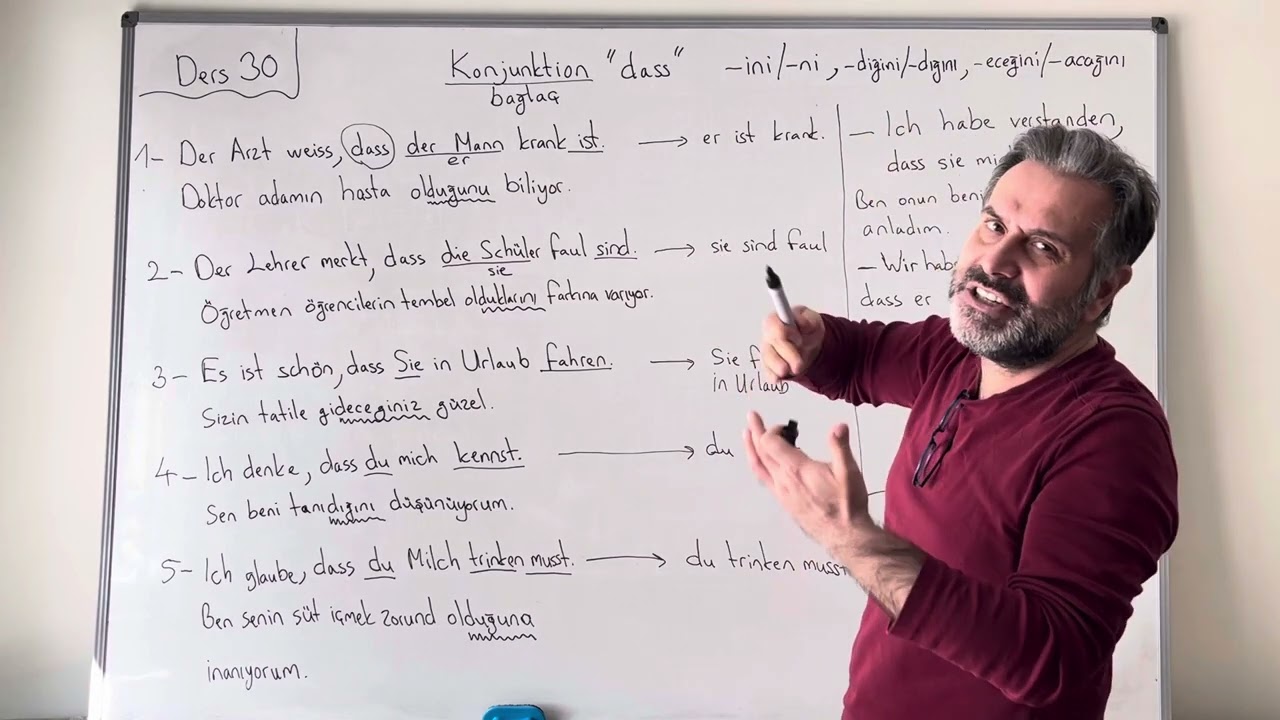 Ders 30
Konjunktion "dass" -ini/-ni, -diğini/-dığını, -eceğini/-acağını
bağlaç
1- Der Arzt weiss, dass der Mann krank ist. → er ist krank.
er
Doktor adamın hasta olduğunu biliyor.
2- Der Lehrer merkt, dass die Schüler faul sind. → sie sind faul
sie
Öğretmen öğrencilerin tembel olduklarını farkına varıyor.
3- Es ist schön, dass Sie in Urlaub fahren. → Sie f
in Urlaub
Sizin tatile gideceğiniz güzel.
4- Ich denke, dass du mich kennst. → du
Sen beni tanıdığını düşünüyorum.
5- Ich glaube, dass du Milch trinken musst. → du trinken musst
Ben senin süt içmek zorund olduğuna
inanıyorum.
- Ich habe verstanden,
dass sie mi
Ben onun beni
anladım.
- Wir hab
dass er